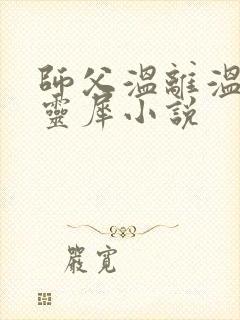 師父溫離溫
靈犀小說
嚴寬